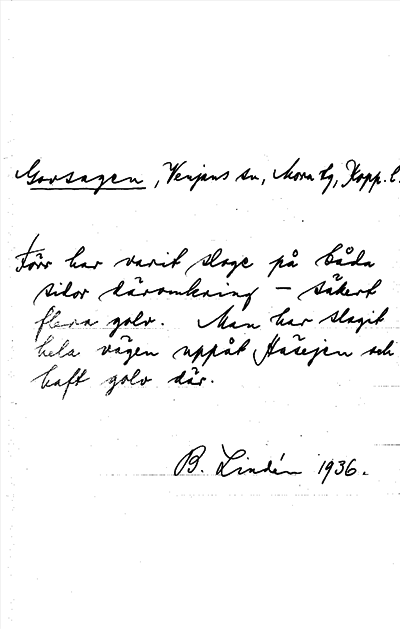 Gorsagen, Venjans sn, Mora tg, Kopp. l.
Förr har varit sloge på båda
sidor däromkring – säkert
flera golv. Man har slagit
hela vägen uppåt Håsejen och
haft golv där.
B. Lindén 1936.